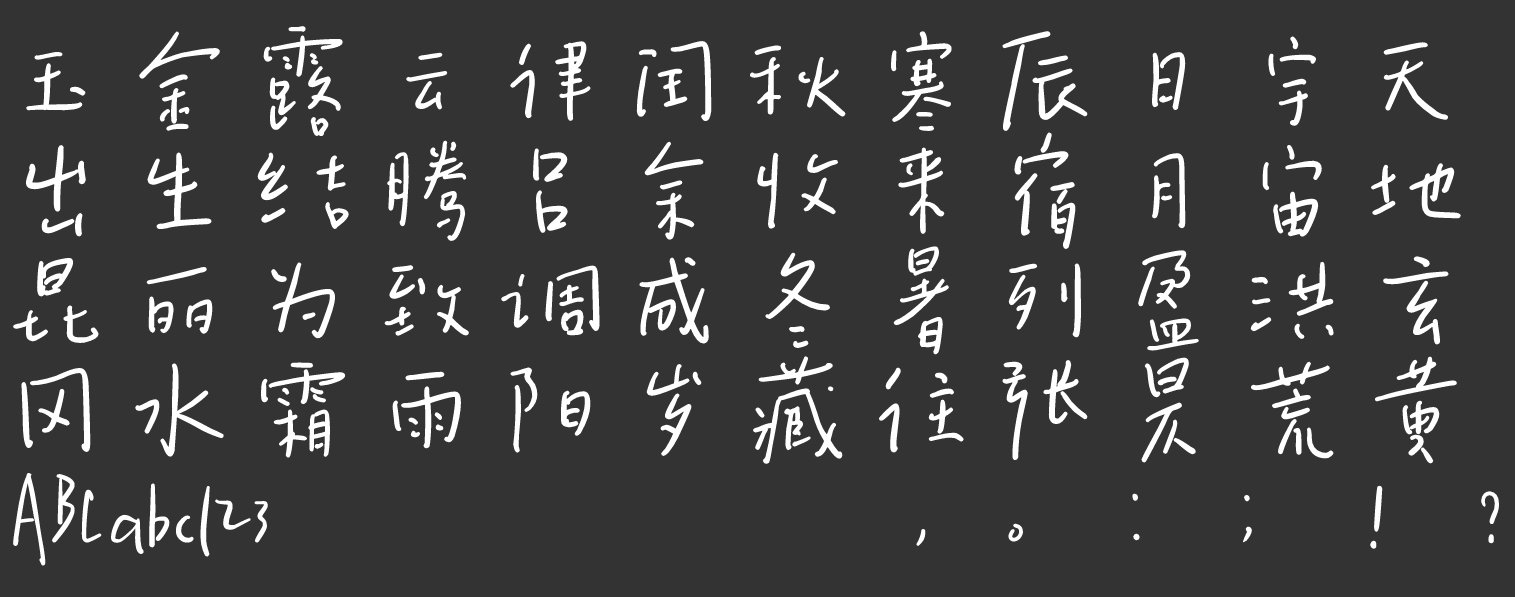 天地玄黄
宇宙洪荒
日月盈昃
辰宿列张
寒来暑往
秋收冬藏
闰余成岁
律吕调阳
云腾致雨
露结为霜
金生丽水
玉出昆冈
ABCabc123 ，。：；！？